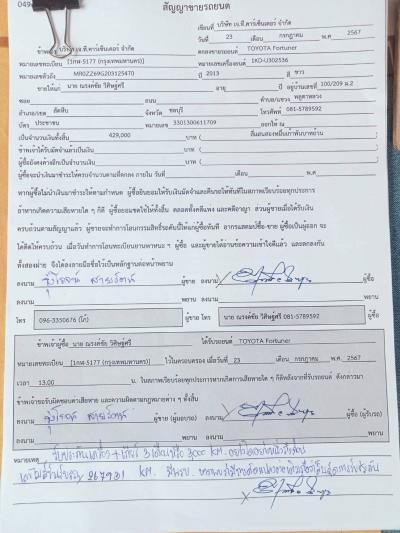 049
สัญญาขายรถยนต์
เขียนที่ บริษัท เจ.ที.คาร์เซ็นเตอร์ จำกัด
วันที่ 23 เดือน กรกฎาคม พ.ศ 2567
ข้าพเจ้า บริษัท เจ.ที.คาร์เซ็นเตอร์ จำกัด ตกลงขายรถยนต์ TOYOTA Fortuner
หมายเลขทะเบียน [1กศ-5177 (กรุงเทพมหานคร)] หมายเลขเครื่องยนต์ 1KD-U302536
หมายเลขตัวถัง MR0ZZ69G203125470 ปี 2013 สี ขาว
ขายให้แก่ นาย ณรงค์ชัย วิศิษฐ์ศรี อายุ ปี อยู่บ้านเลขที่ 100/209 ม.2
ซอย ถนน ตำบล/แขวง พลูตาหลวง
อำเภอ/เขต สัตหีบ จังหวัด ชลบุรี โทรศัพท์ 081-5789592
บัตร ประชาชน หมายเลข 3301300611709 ออกให้ ณ
เป็นจำนวนเงินทั้งสิ้น 429,000 บาท ( สี่แสนสองหมื่นเก้าพันบาทถ้วน )
ข้าพเจ้าได้รับมัดจำแล้วเป็นเงิน บาท ( )
ผู้ซื้อยังคงค้างอีกเป็นจำนวนเงิน บาท ( )
ผู้ซื้อจะนำเงินมาชำระให้ครบจำนวนตามที่ตกลง ภายใน วันที่ เดือน พ.ศ
หากผู้ซื้อไม่นำเงินมาชำระให้ตามกำหนด ผู้ซื้อยินยอมให้รับเงินมัดจำและคืนรถให้ทันทีในสภาพเรียบร้อยทุกประการ
ถ้าหากเกิดความเสียหายใด ๆ ก็ดี ผู้ซื้อยอมชดใช้ให้ทั้งสิ้น ตลอดทั้งคดีแพ่ง และคดีอาญา ส่วนผู้ขายเมื่อได้รับเงิน
ครบถ้วนตามสัญญาแล้ว ผู้ขายจะทำการโอนกรรมสิทธิ์รถคันนี้ให้แก่ผู้ซื้อทันที
ได้ติดให้ครบถ้วน เมื่อวันทำการโอนทะเบียนยานพาหนะ ฯ ผู้ซื้อ และผู้ขายได้อ่านข้อความเข้าใจดีแล้ว และตกลงกัน
ทั้งสองฝ่าย จึงได้ลงลายมือชื่อไว้เป็นหลักฐานต่อหน้าพยาน
ลงนาม ผู้ขาย ลงนาม ผู้ซื้อ
ลงนาม พยาน ลงนาม พยาน
โทร 096-3350676 (โก้) ผู้ขาย โทร นาย ณรงค์ชัย วิศิษฐ์ศรี 081-5789592 ผู้ซื้อ
ข้าพเจ้าผู้ซื้อ นาย ณรงค์ชัย วิศิษฐ์ศรี ได้รับรถยนต์ TOYOTA Fortuner
หมายเลขทะเบียน [1กศ-5177 (กรุงเทพมหานคร)] ไว้ในครอบครอง เมื่อวันที่ 23 เดือน กรกฎาคม พ.ศ 2567
เวลา 13.00 น. ในสภาพเรียบร้อยทุกประการหากเกิดการเสียหายใด ๆ ก็ดีหลังจากที่รับรถยนต์ ดังกล่าวมา
ข้าพเจ้าขอรับผิดชอบตัวเสียหาย และความผิดตามกฎหมายต่าง ๆ ทั้งสิ้น
ลงนาม ผู้ขาย (ผู้มอบรถ) ลงนาม ผู้ซื้อ (ผู้รับรถ)
ลงนาม พยาน ลงนาม พยาน
หมายเหตุ รับประกันเครื่อง + เกียร์ 3 เดือน 3,000 KM.
267931 KM.